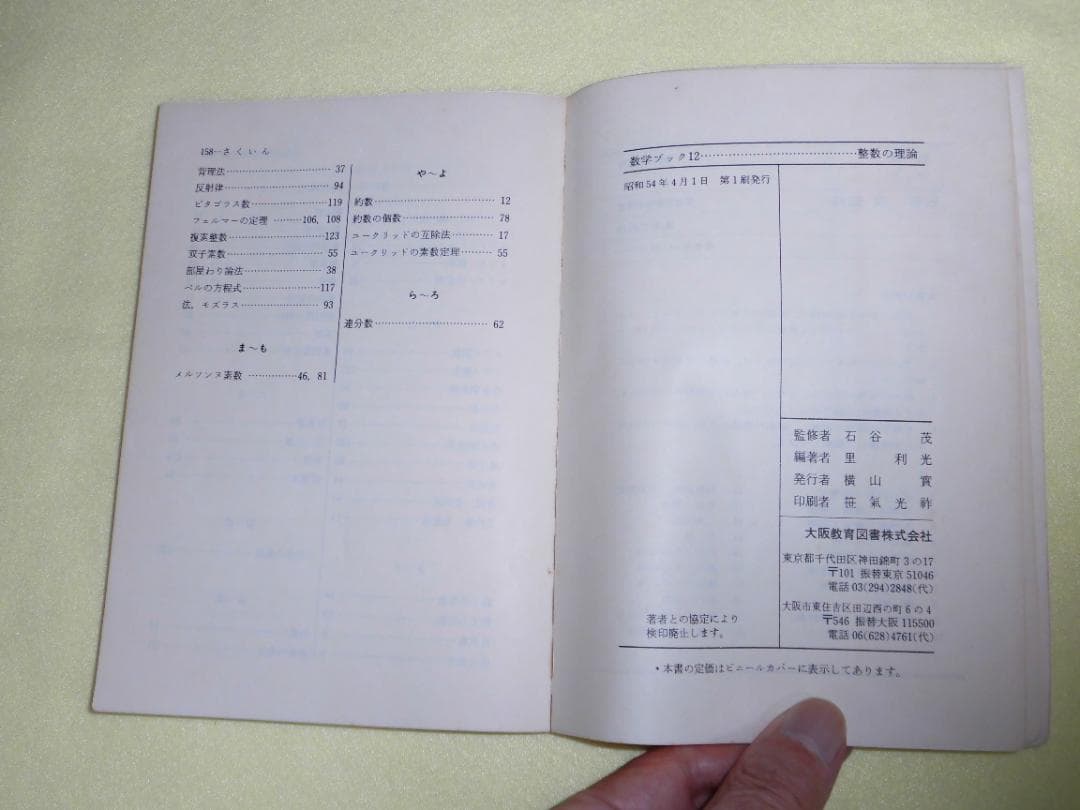 158―さくいん
背理法…………………………37
反射律…………………………94
ピタゴラス数…………………119
フェルマーの定理………106, 108
複素整数………………………123
双子素数………………………55
部屋わり論法…………………38
ペルの方程式…………………117
法，モズラス…………………93
ま～も
メルソンヌ素数……………46, 81
や～よ
約数……………………………12
約数の個数……………………78
ユークリッドの互除法………17
ユークリッドの素数定理………55
ら～ろ
連分数…………………………62
数学ブック12……………………………整数の理論
昭和54年4月1日 第1刷発行
監修者 石谷 茂
編著者 里 利光
発行者 横山 實
印刷者 笹氣光祚
大阪教育図書株式会社
東京都千代田区神田錦町3の17
〒101 振替東京51046
電話03(294)2848(代)
大阪市東住吉区田辺西の町6の4
〒546 振替大阪115500
電話06(628)4761(代)
著者との協定により
検印廃止します。
・本書の定価はビニールカバーに表示してあります。